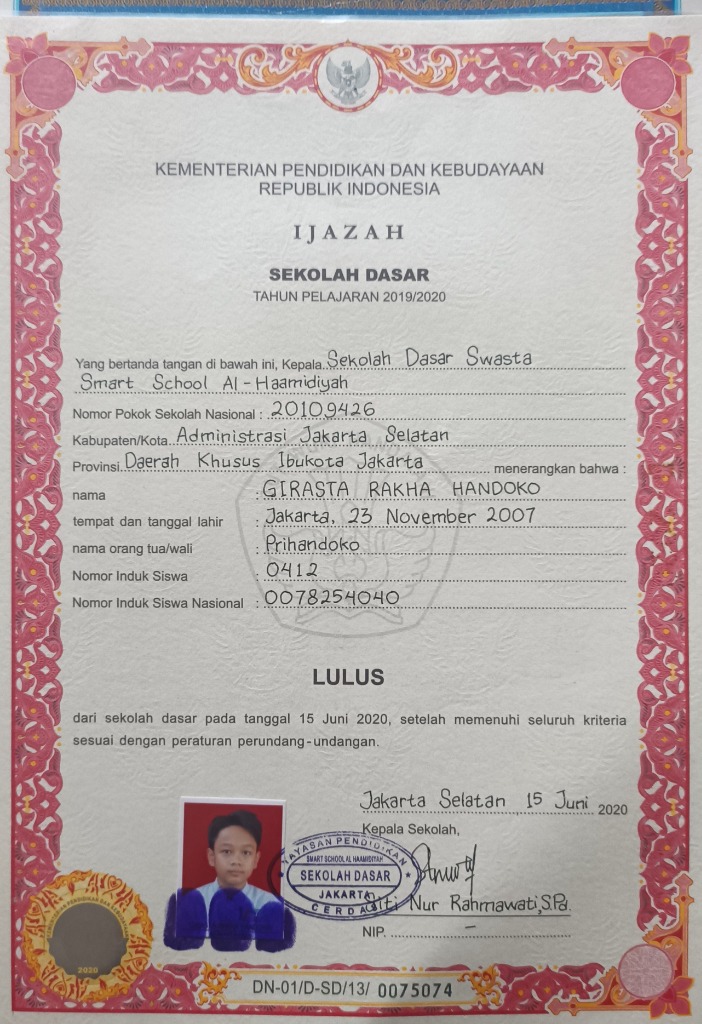 KEMENTERIAN PENDIDIKAN DAN KEBUDAYAAN
REPUBLIK INDONESIA
IJAZAH
SEKOLAH DASAR
TAHUN PELAJARAN 2019/2020
Yang bertanda tangan di bawah ini, Kepala Sekolah Dasar Swasta
Smart School Al-Haamidiyah
Nomor Pokok Sekolah Nasional : 20109426
Kabupaten/Kota Administrasi Jakarta Selatan
Provinsi Daerah Khusus Ibukota Jakarta menerangkan bahwa :
nama : GIRASTA RAKHA HANDOKO
tempat dan tanggal lahir : Jakarta, 23 November 2007
nama orang tua/wali : Prihandoko
Nomor Induk Siswa : 0412
Nomor Induk Siswa Nasional : 0078254040
LULUS
dari sekolah dasar pada tanggal 15 Juni 2020, setelah memenuhi seluruh kriteria
sesuai dengan peraturan perundang-undangan.
Jakarta Selatan, 15 Juni 2020
Kepala Sekolah,
YAYASAN PENDIDIKAN
SMART SCHOOL AL HAAMIDIYAH
SEKOLAH DASAR
JAKARTA
CERDAS
Siti Nur Rahmawati, S.Pd.
NIP. –
2020
DN-01/D-SD/13/ 0075074